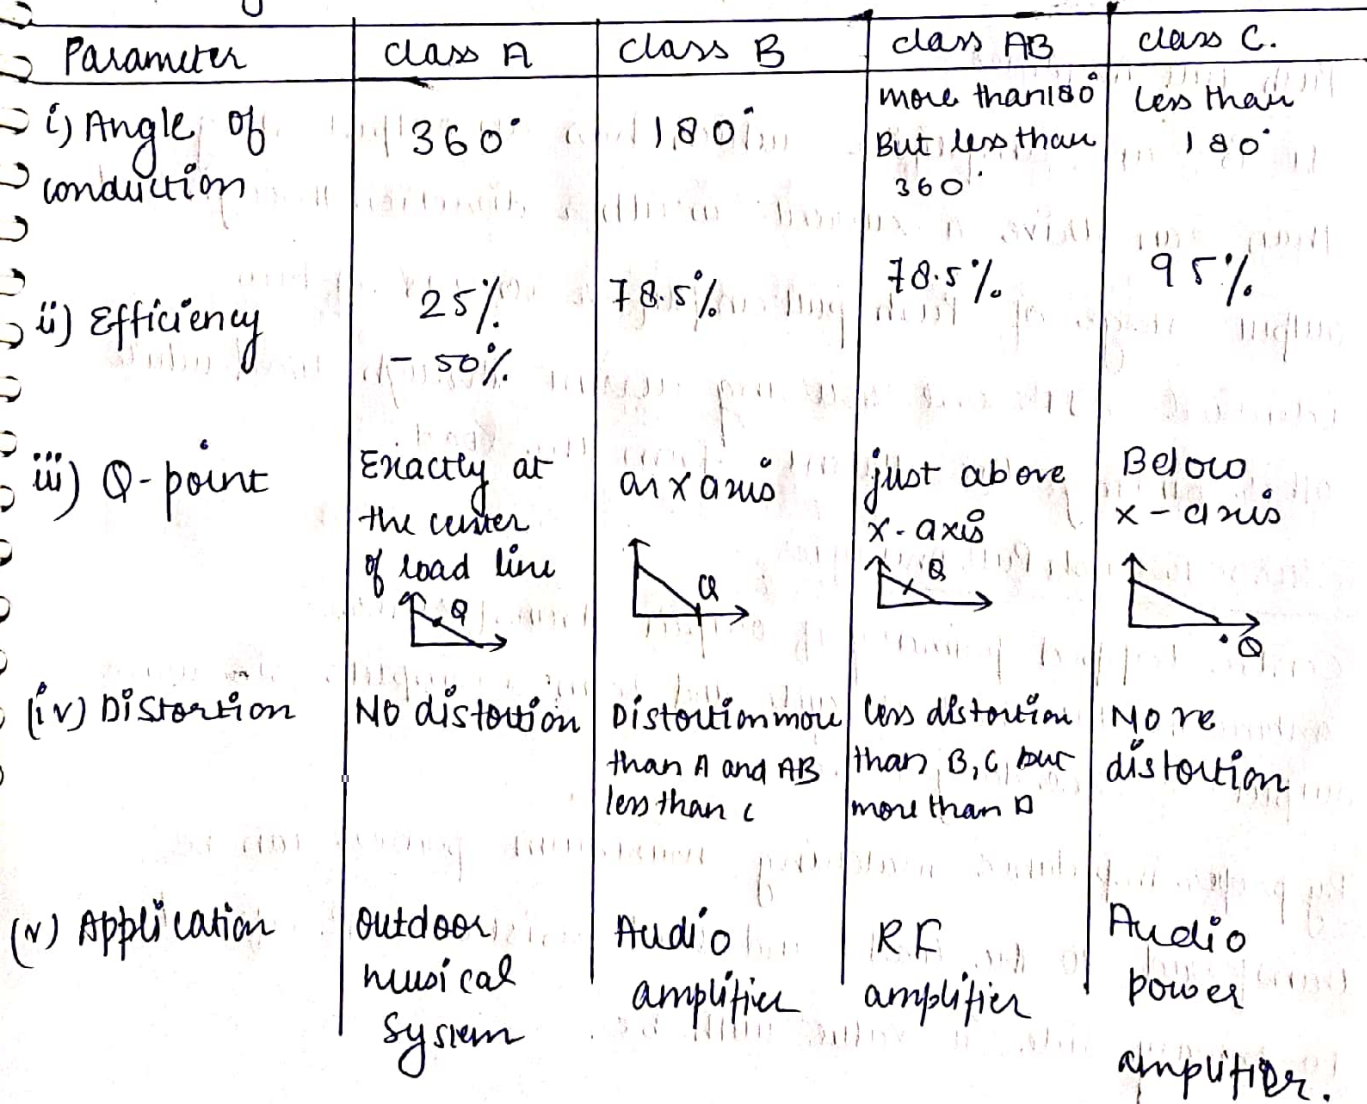 Parameter class A class B class AB class C.
i) Angle of conduction 360° 180° more than 180° But less than 360° less than 180°
ii) Efficiency 25% - 50% 78.5% 78.5% 95%
iii) Q-point Exactly at the center of load line an x axis just above x-axis Below x-axis
Q Q Q Q
(iv) Distortion No distortion Distortion more than A and AB less than C less distortion than B, C, but more than A More distortion
(v) Application outdoor musical system Audio amplifier RF amplifier Audio power amplifier.